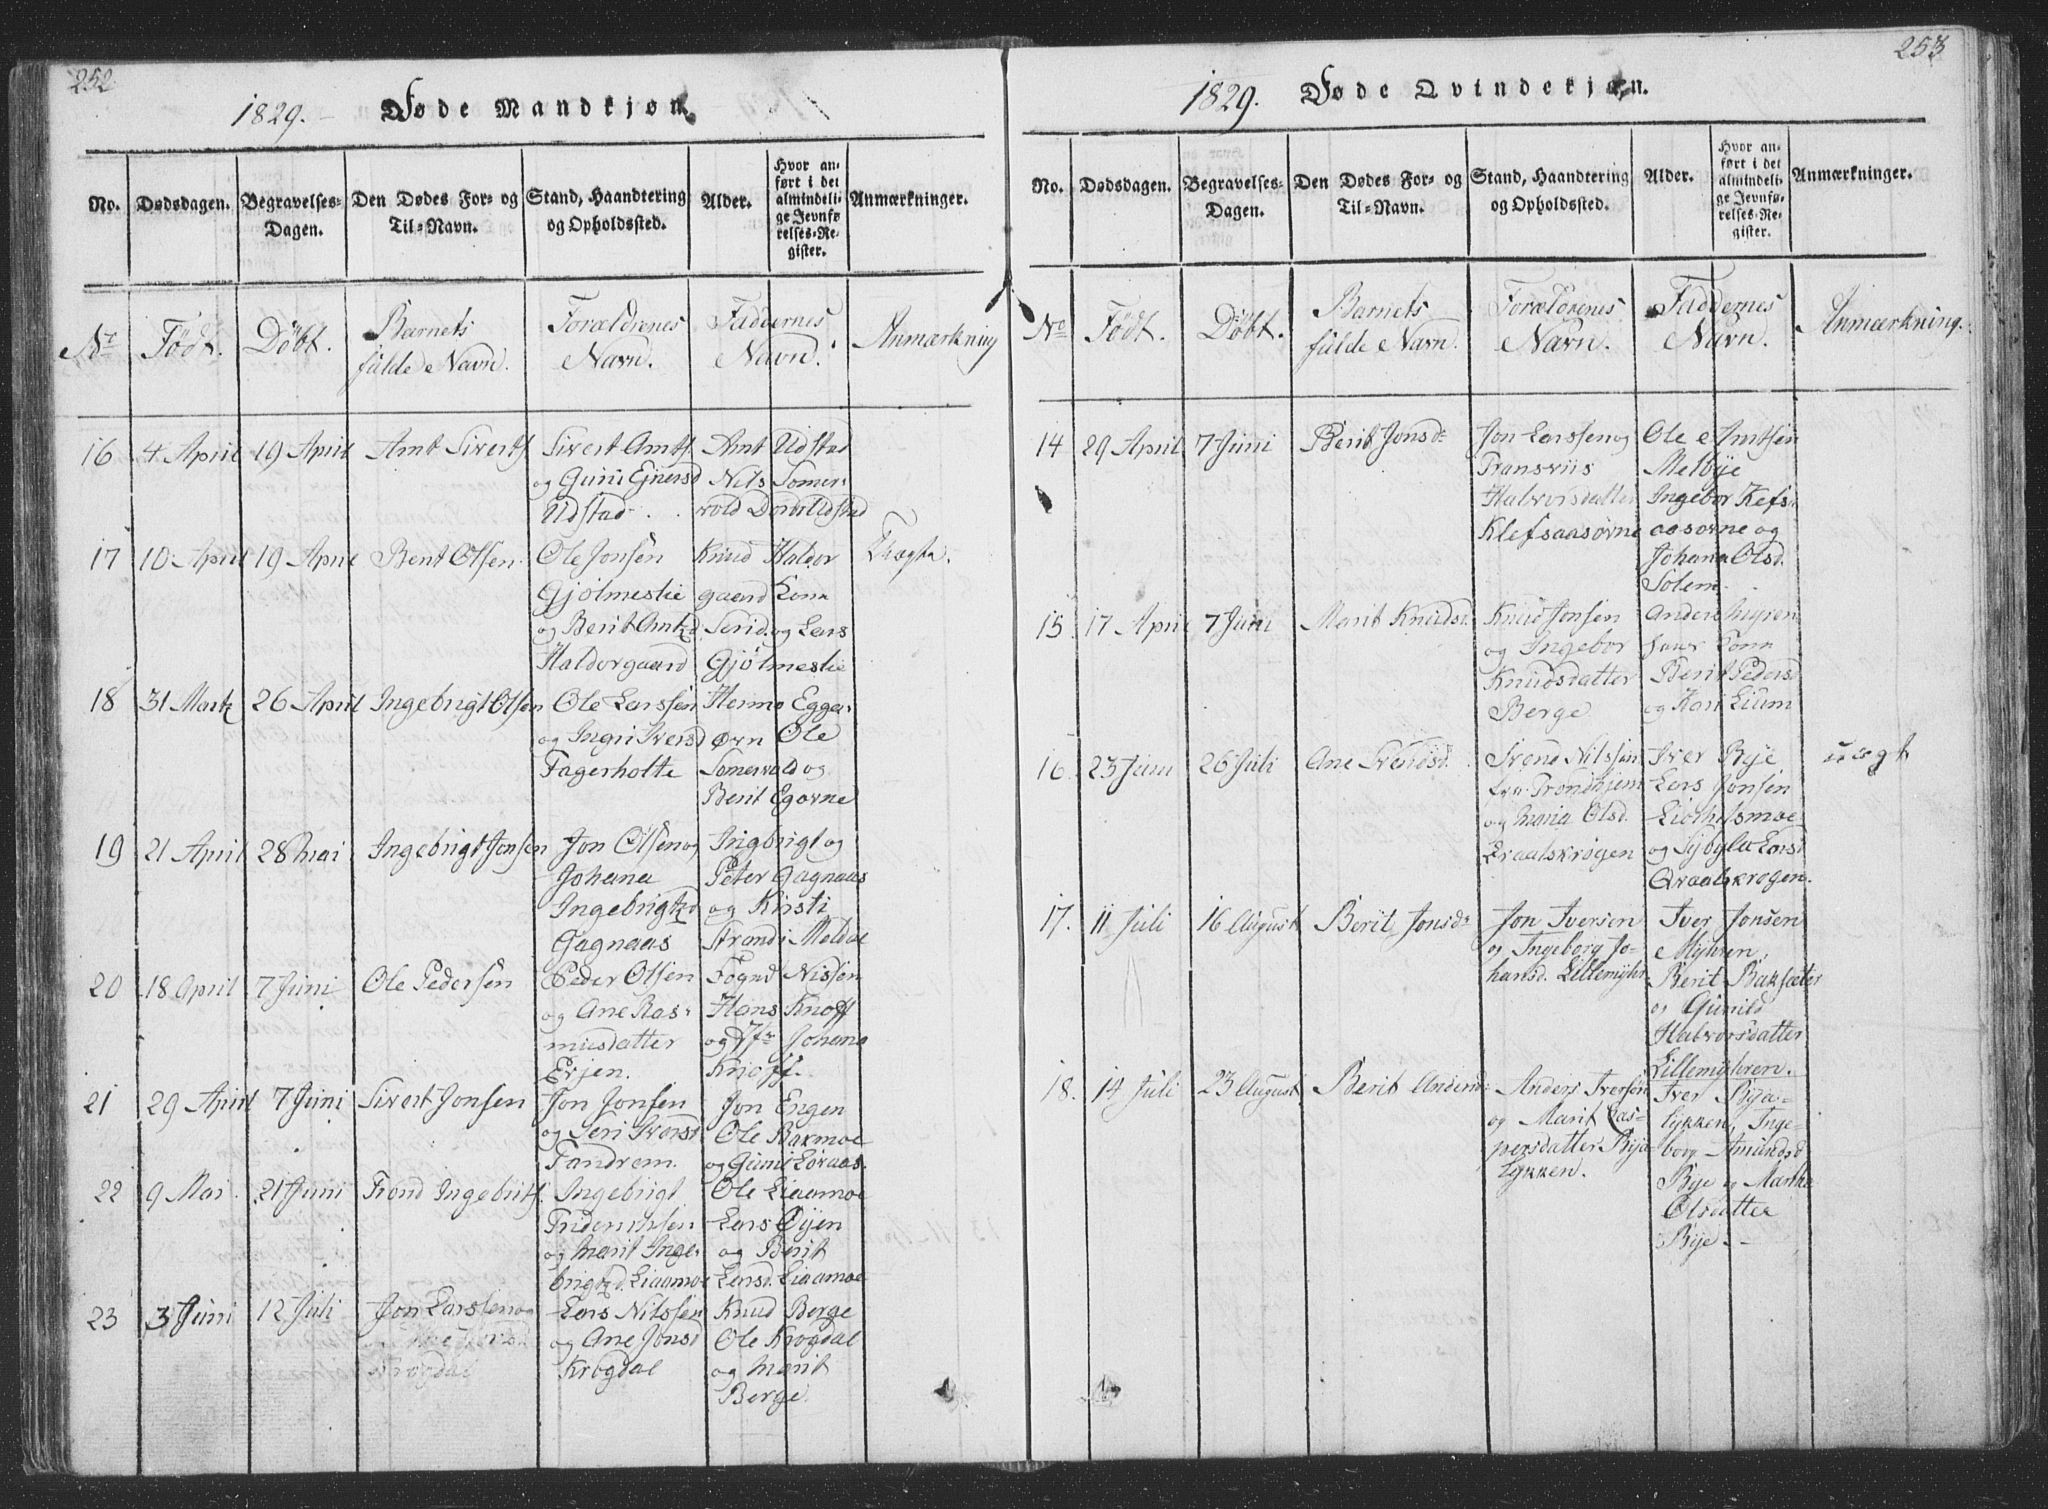 252
1829. Føde Mandkjøn
No.
Dødsdagen.
Begravelses-
Dagen.
Den Dødes For- og
Til-Navn.
Stand, Haandtering
og Opholdssted.
Alder.
Hvor an-
ført i det
almindeli-
ge Jevnfø-
relses-Re-
gister.
Anmærkninger.
No
Født.
Döbt.
Barnets
fulde Navn.
Forældrenes
Navn.
Faddernes
Navn.
Anmærkning
16
4 April
19 April
Amt Siverts.
Sivert Amts.
og Guru Ejnersd
Udstad
Amt Udstad
Nils Somer-
vold Dorbt Udstad
17
10 April
19 April
Bent Olsen.
Ole Jonsen
Gjölmeslie
og Berit Amtzd.
Haldorgaard
Knud Haldor
gaard Kona
Serid. og Lars
Gjölmeslie
18
31 Martz
26 April
Ingebrigt Olsen
Ole Larssen
og Ingri Iversd
Fagerholte
Hemo Egga-
Ørn Ole
Somervald og
Berit Egorne
19
21 April
28 Mai
Ingebrigt Jonsen
Jon Olsen og
Johana
Ingebrigtzd
Gagnaas
Ingbrigt og
Peter Gagnaas
og Kristi
Strand i Meldal
20
18 April
7 Juni
Ole Pedersen
Peder Olsen
og Ane Ras-
musdatter
Evjen.
Fogd Nissen
Hans Knoff
og Jfr Johana
Knoff.
21
29 April
7 Juni
Sivert Jonsen
Jon Jonsen
og Seri Iversd
Fandrem.
Jon Engen
Ole Bakmoe
og Guni Löraas.
22
9 Mai
21 Juni
Trond Ingebrits.
Ingebrigt
Friderichsen
og Marit Inge-
brigtzd. Liaamoe
Ole Liaamoe
Lars Øyen
og Berit
Larsd. Liaamoe
23
3 Juni
12 Juli
Jon Larssen og
Krogdal
Lars Nilssen
og Ane Jonsd
Krogdal
Knud Berge
Ole Krogdal
og Marit
Berge.
253
1829. Føde Qvindekjøn.
No.
Dødsdagen.
Begravelses-
Dagen.
Den Dødes For- og
Til-Navn.
Stand, Haandtering
og Opholdssted.
Alder.
Hvor an-
ført i det
almindeli-
ge Jevnfø-
relses-Re-
gister.
Anmærkninger.
No
Födt.
Döbt.
Barnets
fulde Navn.
Forældrenes
Navn.
Faddernes
Navn.
Anmærkning.
14
29 April
7 Juni
Berit Jonsd.
Jon Larssen og
Halvorsdatter
Klefsaasørne
Ole Amtsen
Melbye
Ingebor Kefs-
aasørne og
Johana Olsd.
Solem.
15
17 April
7 Juni
Marit Knudsd.
Knud Jonsen
og Ingebor
Knudsdatter
Berge
Anders Myren
Kona
Berit Pedersd
og Kari Lium
16
23 Juni
26 Juli
Ane Svendsd.
Svend Nilssen
fra Trondhjem
og Maria Olsd.
Qraalskrogen
Iver Bye
Lars Jonsen
Liotholsmoe
og Sybylla Larsd
Qraalskrogen.
uægt
17.
11 Juli
16 August
Berit Jonsd.
Jon Iversen
og Ingeborg Jo-
hansd. Lillemyhr
Iver Jonsen
Myhren,
Berit Baksæter
og Gunild
Halvorsdatter
Lillemyhren.
18.
14 Juli
23 August
Berit Andersd.
Anders Iversen
og Marit Cas-
persdatter Bya
lykken.
Iver Bya-
lykken, Inge-
borg Amundsd
Bye og Martha
Olsdatter
Bye.